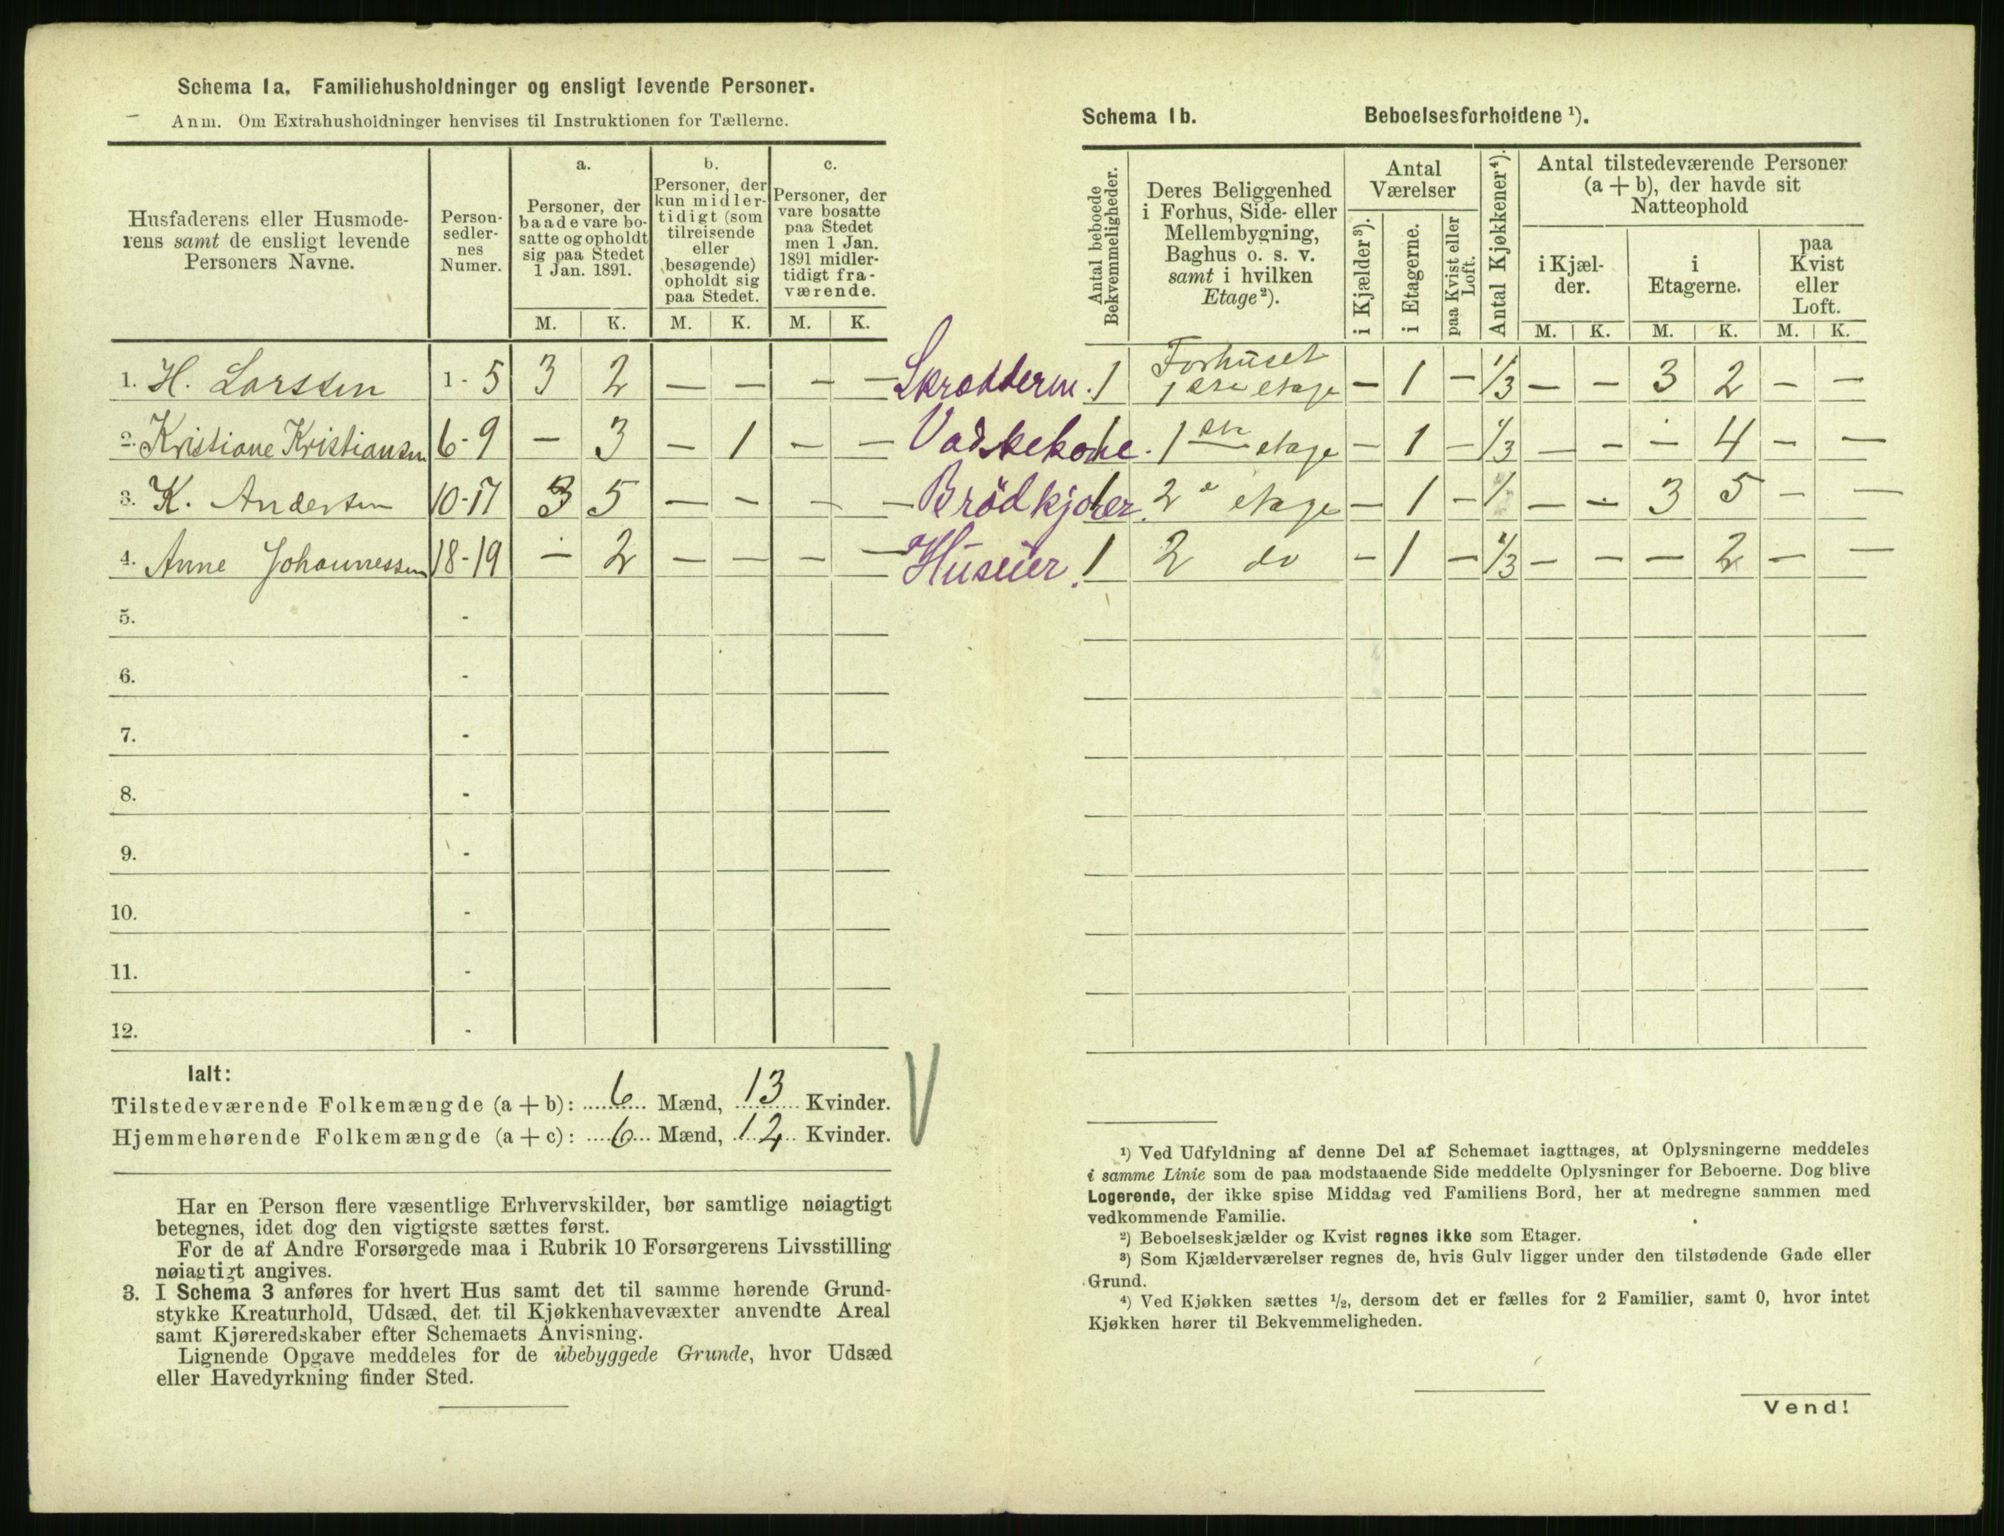 Schema 1a. Familiehusholdninger og ensligt levende Personer.
Anm. Om Extrahusholdninger henvises til Instruktionen for Tællerne.
Husfaderens eller Husmoderens samt de ensligt levende Personers Navne.
Personsedlernes Numer.
a.
Personer, der baade vare bosatte og opholdt sig paa Stedet 1 Jan. 1891.
b.
Personer, der kun midlertidigt (som tilreisende eller besøgende) opholdt sig paa Stedet.
c.
Personer, der vare bosatte paa Stedet men 1 Jan. 1891 midlertidigt fraværende.
M. K. M. K. M. K.
1. H. Larssen 1-5 3 2 — — — —
2. Kristiane Kristiansen 6-9 — 3 — 1 — —
3. K. Andersen 10-17 3 5 — — — —
4. Anne Johannessen 18-19 — 2 — — — —
5. -
6. -
7. -
8. -
9. -
10. -
11. -
12. -
Ialt:
Tilstedeværende Folkemængde (a + b): 6 Mænd, 13 Kvinder.
Hjemmehørende Folkemængde (a + c): 6 Mænd, 12 Kvinder.
Har en Person flere væsentlige Erhvervskilder, bør samtlige nøiagtigt
betegnes, idet dog den vigtigste sættes først.
For de af Andre Forsørgede maa i Rubrik 10 Forsørgerens Livsstilling
nøiagtigt angives.
3. I Schema 3 anføres for hvert Hus samt det til samme hørende Grund-
stykke Kreaturhold, Udsæd, det til Kjøkkenhavevæxter anvendte Areal
samt Kjøreredskaber efter Schemaets Anvisning.
Lignende Opgave meddeles for de ubebyggede Grunde, hvor Udsæd
eller Havedyrkning finder Sted.
Schema 1b. Beboelsesforholdene ¹).
Antal beboede Bekvemmeligheder.
Deres Beliggenhed i Forhus, Side- eller Mellembygning, Baghus o. s. v. samt i hvilken Etage²).
Antal Værelser
i Kjælder³).
i Etagerne.
paa Kvist eller Loft.
Antal Kjøkkener⁴).
Antal tilstedeværende Personer (a + b), der havde sit Natteophold
i Kjælder.
i Etagerne.
paa Kvist eller Loft.
M. K. M. K. M. K.
Skrædderm. 1 Forhuset 1ste etage — 1 — 1/3 — — 3 2 — —
Vadskekone. 1 1ste etage — 1 — 1/3 — — — 4 — —
Brödkjører. 1 2 etage — 1 — — — 3 5 — —
Huseier. 1 2 do — 1 — 1/3 — — — 2 — —
¹) Ved Udfyldning af denne Del af Schemaet iagttages, at Oplysningerne meddeles
i samme Linie som de paa modstaaende Side meddelte Oplysninger for Beboerne. Dog blive
Logerende, der ikke spise Middag ved Familiens Bord, her at medregne sammen med
vedkommende Familie.
²) Beboelseskjælder og Kvist regnes ikke som Etager.
³) Som Kjælderværelser regnes de, hvis Gulv ligger under den tilstødende Gade eller
Grund.
⁴) Ved Kjøkken sættes ½, dersom det er fælles for 2 Familier, samt 0, hvor intet
Kjøkken hører til Bekvemmeligheden.
Vend!